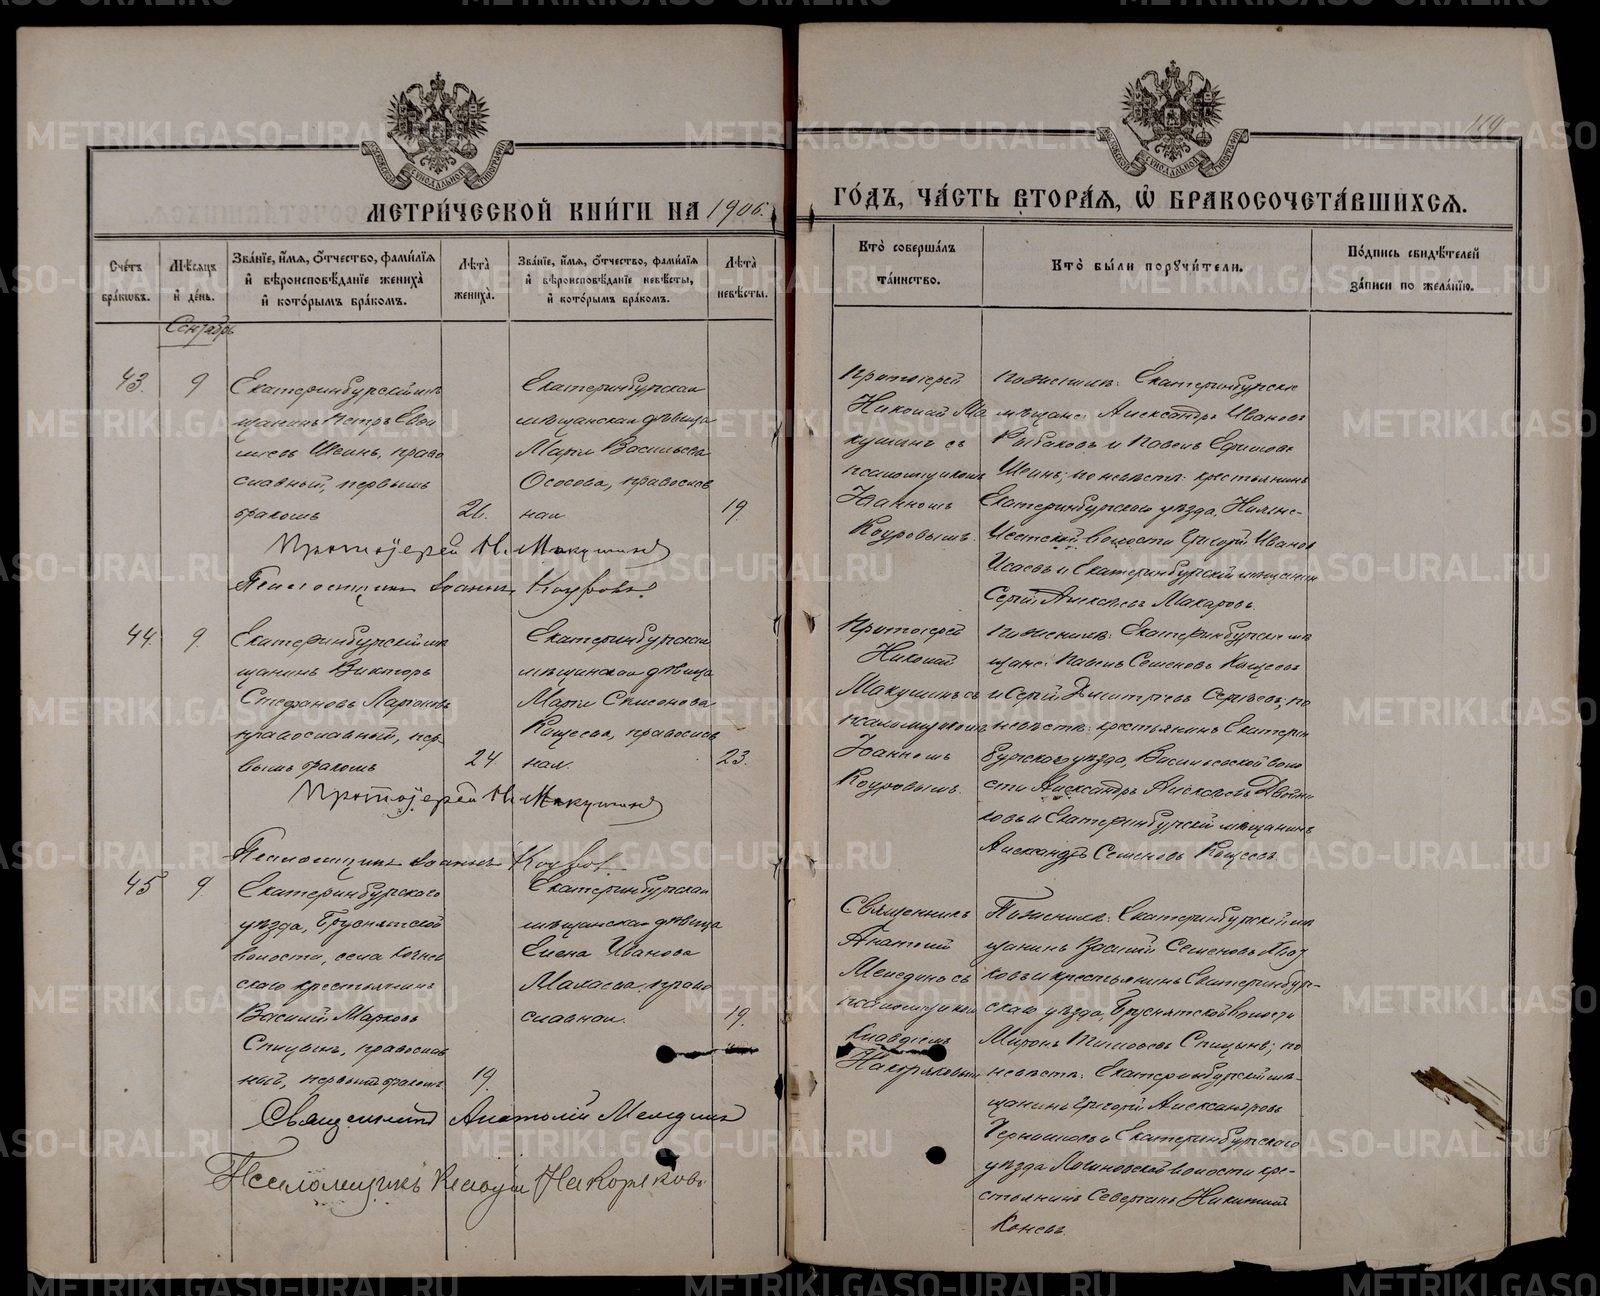 МЕТРИ́ЧЕСКОЙ КНИ́ГИ НА 1906.
ГО́ДЪ, ЧА́СТЬ ВТОРА́Я, Ѡ БРАКОСОЧЕТА́ВШИХСЯ.
119
Сче́тъ бра́кѡвъ.
Мѣ́сѧцъ и де́нь.
Зва́нїе, и́мѧ, о́тчество, фами́лїѧ и вѣроисповѣ́данїе жениха̀ и кото́рымъ бра́комъ.
Лѣ́та жениха̀.
Зва́нїе, и́мѧ, о́тчество, фами́лїѧ и вѣроисповѣ́данїе невѣ́сты, и кото́рымъ бра́комъ.
Лѣ́та невѣ́сты.
Кто̀ соверша́лъ та́инство.
Кто̀ бы́ли порꙋчи́тели.
По́дпись свидѣ́телей за́писи по жела́нїю.
Сентябрь
43.
9
Екатеринбургскій мѣ
щанинъ Петръ
Шеинъ, право
славный, первымъ
бракомъ
Екатеринбургская
мѣщанская дѣвица
Марія Васильева
православ
ная
19.
Протоіерей
Николай Ма
кушинъ съ
псаломщикомъ
Іоанномъ
Коуровымъ.
по женихѣ: Екатеринбургскіе
мѣщане: Александръ Ивановъ
Рыбаковъ и Павелъ Ефимовъ
Шеинъ; по невѣстѣ: крестьянинъ
Екатеринбургскаго уѣзда, Нижне-
Исетской волости Григорій Ивановъ
Исаевъ и Екатеринбургскій мѣщанинъ
Сергій Алексѣевъ Макаровъ.
Протоіерей Н. Макушинъ
Псаломщикъ Іоаннъ Коуровъ.
44.
9.
Екатеринбургскій мѣ
щанинъ Викторъ
Стефановъ
православный, пер
вымъ бракомъ
24
Екатеринбургская
мѣщанская дѣвица
Марія Симеонова
Кощеева, православ
ная.
23.
Протоіерей
Николай
Макушинъ съ
псаломщикомъ
Іоанномъ
Коуровымъ.
по женихѣ: Екатеринбургскіе мѣ
щане: Павелъ Семеновъ Кощеевъ
и Сергій Димитріевъ Сергѣевъ; по
невѣстѣ: крестьянинъ Екатерин
бургскаго уѣзда, Васильевской воло
сти Александръ Алексѣевъ Двойни
ковъ и Екатеринбургскій мѣщанинъ
Александръ Семеновъ Кощеевъ
Протоіерей Н. Макушинъ
Псаломщикъ Іоаннъ Коуровъ
45
9
Екатеринбургскаго
уѣзда, Бруснятской
волости, села
скаго крестьянинъ
Василій Марковъ
Спицынъ, православ
ный, первымъ бракомъ
19.
Екатеринбургская
мѣщанская дѣвица
Елена Иванова
право
славная.
19.
Священникъ
Анатолій
Мелединъ съ
псаломщикомъ
Клавдіемъ
Накоряковымъ
По женихѣ: Екатеринбургскій мѣ
щанинъ Василій Семеновъ
ковъ и крестьянинъ Екатеринбург-
скаго уѣзда, Бруснятской волости
Миронъ Спицынъ; по
невѣстѣ: Екатеринбургскій мѣ-
щанинъ Григорій Александровъ
и Екатеринбургскаго
уѣзда Логиновской волости кре-
стьянинъ Севертянъ Никитинъ
Коневъ.
Священникъ Анатолій Мелединъ
Псаломщикъ Клавдій Накоряковъ
METRIKI.GASO-URAL.RU